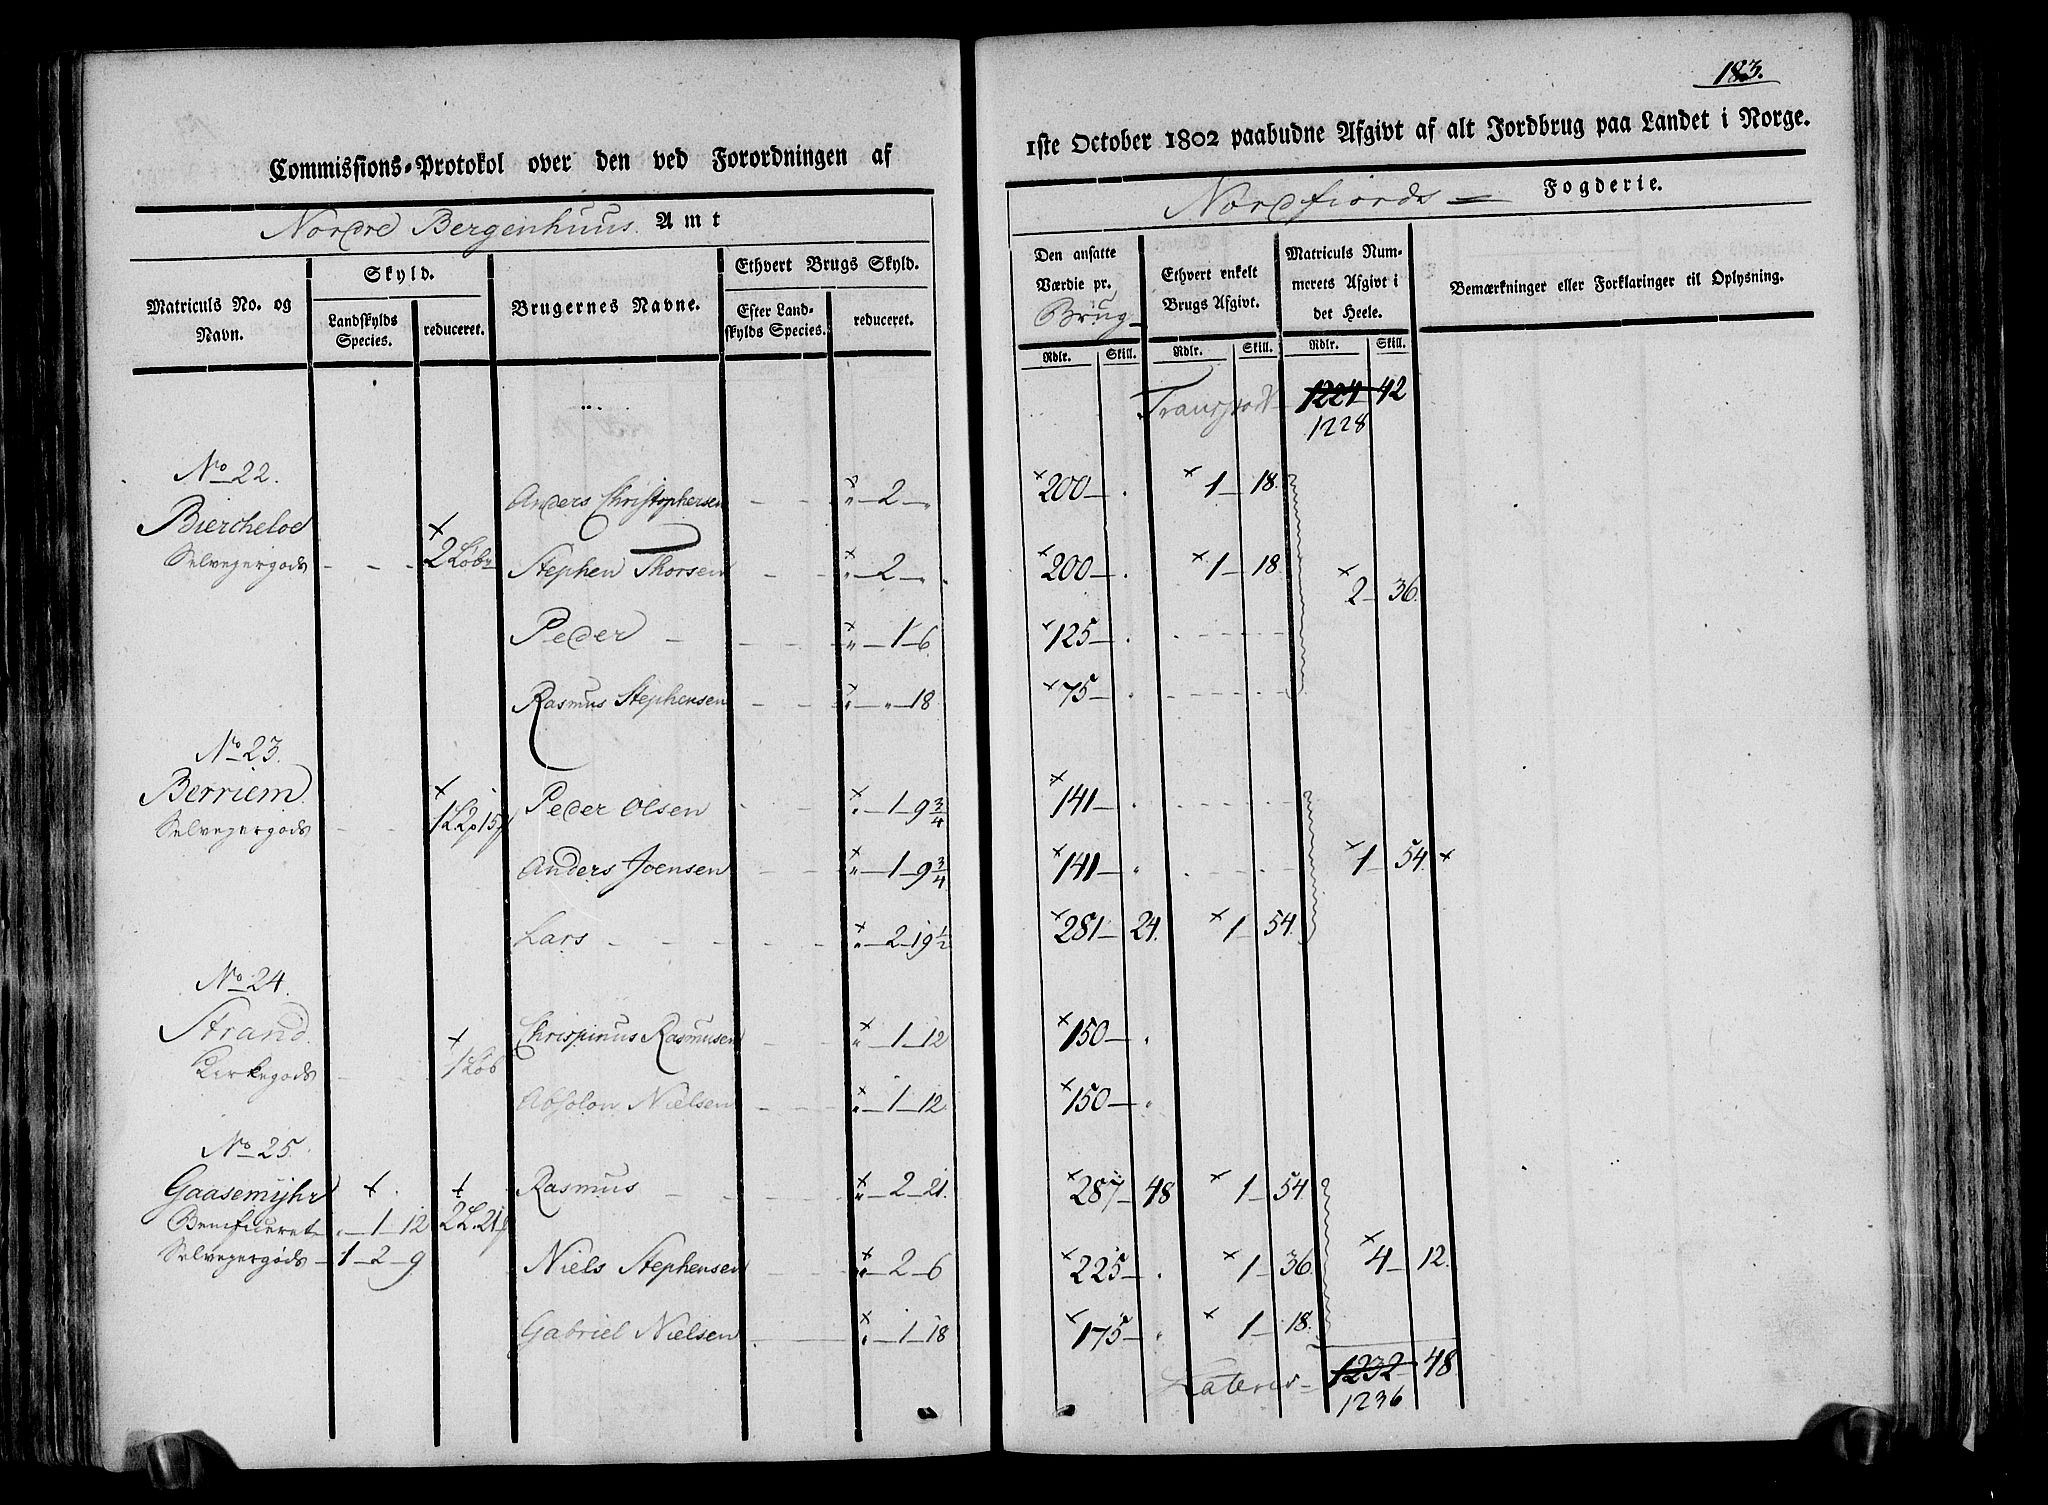 183.
Commissions-Protokol over den ved Forordningen af
1ste October 1802 paabudne Afgivt af alt Jordbrug paa Landet i Norge.
Nordre Bergenhuus Amt
Nordfiords Fogderie.
Matriculs No. og Navn.
Skyld.
Landskylds Species.
reduceret.
Brugernes Navne.
Ethvert Brugs Skyld.
Efter Landskylds Species.
reduceret.
Den ansatte Værdie pr. Brug
Ethvert enkelt Brugs Afgivt.
Matriculs Nummerets Afgivt i det Heele.
Bemærkninger eller Forklaringer til Oplysning.
Rdlr. Skill. Rdlr. Skill. Rdlr. Skill.
Transport 1224 42
1228
No 22.
Anders Christophersen - - " - 2 - " 200 - . 1 - 18.
Biercheloe
Selveyergods - - 2 Løb
Stephen Thorsen - - " - 2 - " 200 - . 1 - 18 2 - 36.
Peder - - - " - 1 - 6. 125 - .
Rasmus Stephensen - - " - " - 18 75 - .
No 23.
Berriem
Selveyergods - - 1 L 2 p 15
Peder Olsen - - " - 1 - 9 3/4 141 - .
Anders Joensen - - " - 1 - 9 3/4 141 - " 1 - 54.
Lars - - - " - 2 - 19 1/2 281 - 24. 1 - 54.
No 24.
Strand
Kirkegods - - 1 Løb
Chrispinus Rasmusen - - " - 1 - 12 150 - .
Absolon Nielsen - - " - 1 - 12 150 - .
No 25.
Gaasemyhr
Rasmus - - - " - 2 - 21. 287 - 48 1 - 54
Beneficeret - . - 1 - 12 2 L. 21
Selveyergods - 1 - 2 - 9
Niels Stephensen - - " - 2 - 6 225 - . 1 - 36. 4 - 12.
Gabriel Nielsen - - " - 1 - 18 175 - . 1 - 18.
Lateris - 1232 - 48
1236